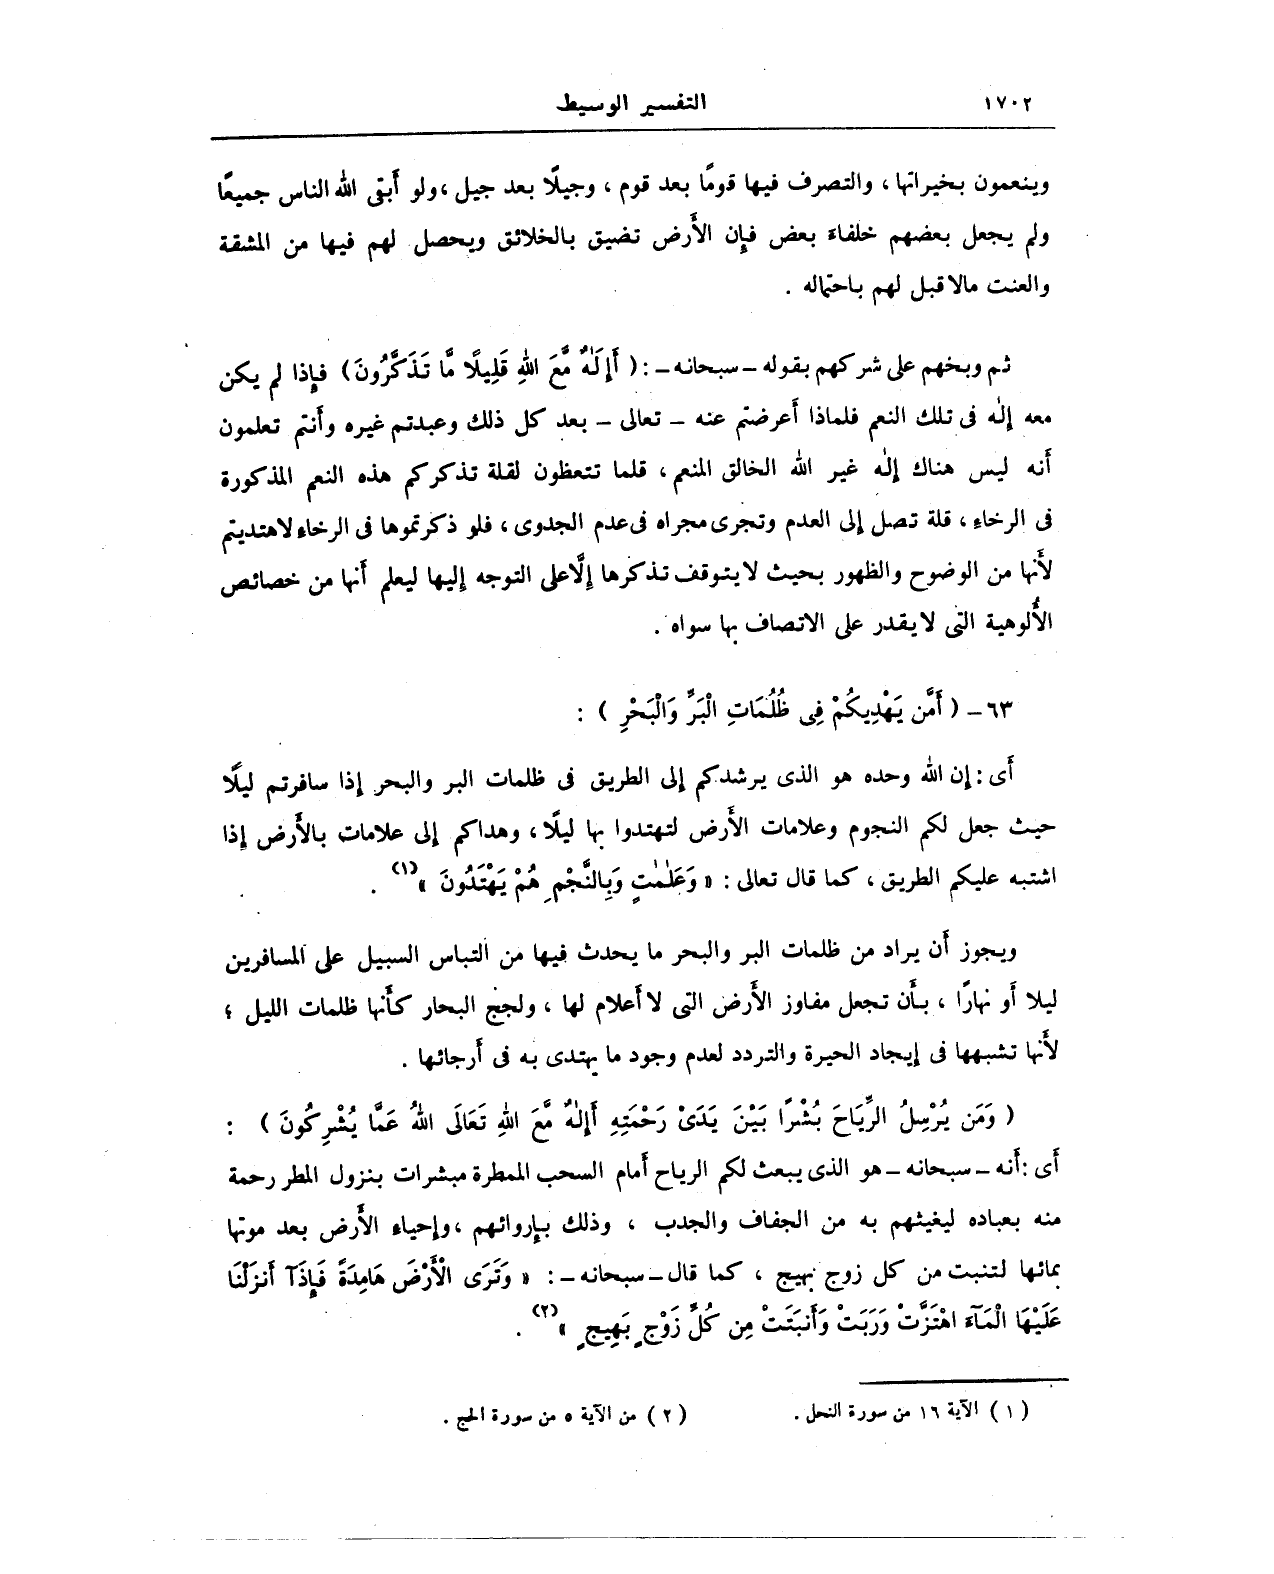 ١٧٠٢ التفسير الوسيط
وينعمون بخيراتها ، والتصرف فيها قومًا بعد قوم ، وجيلًا بعد جيل ،ولو أبقى الله الناس جميعًا
ولم يجعل بعضهم خلفاء بعض فإن الأرض تضيق بالخلائق ويحصل لهم فيها من المشقة
والعنت مالا قبل لهم باحتماله .
ثم وبخهم على شركهم بقوله – سبحانه – : ( أَإِلَٰهٌ مَّعَ اللهِ قَلِيلًا مَّا تَذَكَّرُونَ ) فإذا لم يكن
معه إلٰه فى تلك النعم فلماذا أعرضتم عنه – تعالى – بعد كل ذلك وعبدتم غيره وأنتم تعلمون
أنه ليس هناك إلٰه غير الله الخالق المنعم ، قلما تتعظون لقلة تذكركم هذه النعم المذكورة
فى الرخاءِ ، قلة تصل إلى العدم وتجرى مجراه فى عدم الجدوى ، فلو ذكرتموها فى الرخاء لاهتديتم
لأنها من الوضوح والظهور بحيث لا يتوقف تذكرها إلَّا على التوجه إليها ليعلم أنها من خصائص
الأُلوهية التى لا يقدر على الاتصاف بها سواه .
٦٣ – ( أَمَّن يَهْدِيكُمْ فِى ظُلُمَاتِ الْبَرِّ وَالْبَحْرِ ) :
أى : إن الله وحده هو الذى يرشدكم إلى الطريق فى ظلمات البر والبحر إذا سافرتم ليلًا
حيث جعل لكم النجوم وعلامات الأرض لتهتدوا بها ليلًا ، وهداكم إلى علامات بالأرض إذا
اشتبه عليكم الطريق ، كما قال تعالى : « وَعَلَٰمَٰتٍ وَبِالنَّجْمِ هُمْ يَهْتَدُونَ »(١) .
ويجوز أن يراد من ظلمات البر والبحر ما يحدث فيها من التباس السبيل على المسافرين
ليلا أو نهارًا ، بأن تجعل مفاوز الأرض التى لا أعلام لها ، ولجج البحار كأنها ظلمات الليل ؛
لأنها تشبهها فى إيجاد الحيرة والتردد لعدم وجود ما يهتدى به فى أرجائها .
( وَمَن يُرْسِلُ الرِّيَاحَ بُشْرًا بَيْنَ يَدَىْ رَحْمَتِهِ أَإِلَٰهٌ مَّعَ اللهِ تَعَالَى اللهُ عَمَّا يُشْرِكُونَ ) :
أى : أنه – سبحانه – هو الذى يبعث لكم الرياح أمام السحب الممطرة مبشرات بنزول المطر رحمة
منه بعباده ليغيثهم به من الجفاف والجدب ، وذلك بإروائهم ،وإحياء الأرض بعد موتها
بمائها لتنبت من كل زوج بهيج ، كما قال – سبحانه – : « وَتَرَى الْأَرْضَ هَامِدَةً فَإِذَآ أَنزَلْنَا
عَلَيْهَا الْمَآءَ اهْتَزَّتْ وَرَبَتْ وَأَنبَتَتْ مِن كُلِّ زَوْجٍ بَهِيجٍ »(٢) .
( ١ ) الآية ١٦ من سورة النحل . ( ٢ ) من الآية ٥ من سورة الحج .